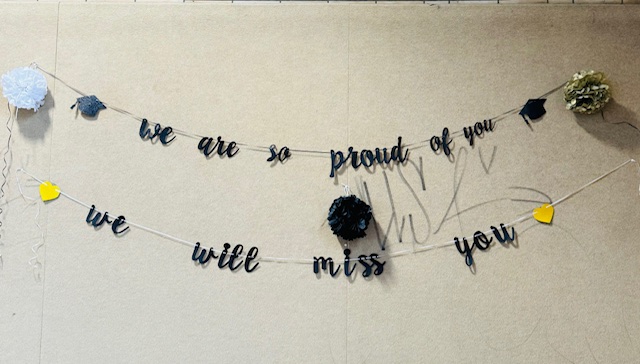 we are so proud of you
we will miss you